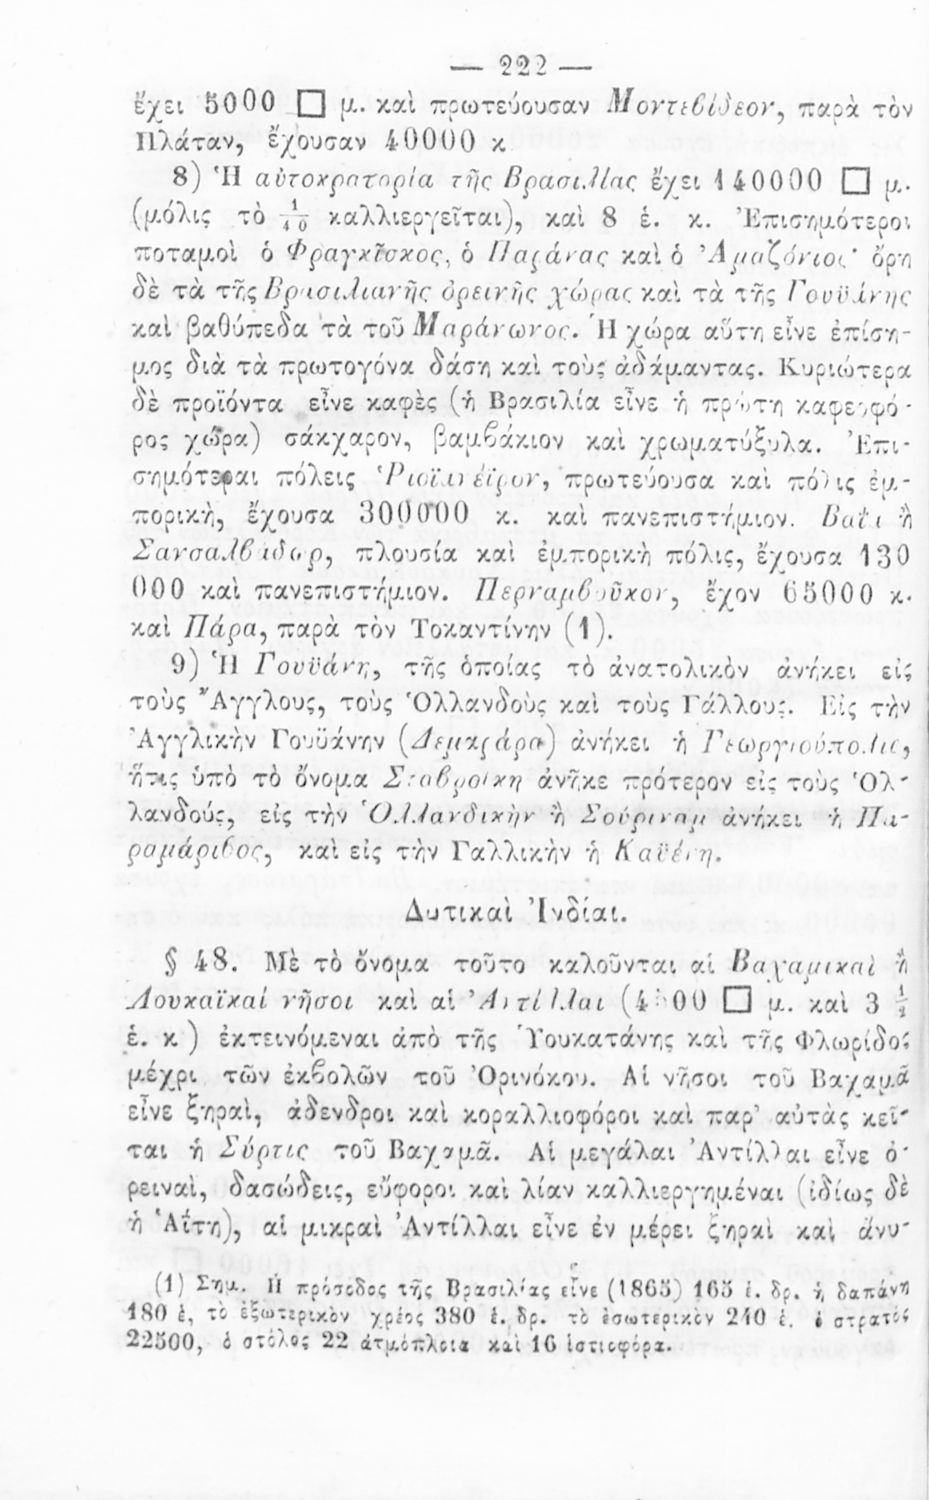 — 222 —
ἔχει 5000 □ μ. καὶ πρωτεύουσαν Μοντεβίδεον, παρὰ τὸν
Πλάταν, ἔχουσαν 40000 κ
8) Ἡ αὐτοκρατορία τῆς Βρασιλίας ἔχει 140000 □ μ.
(μόλις τὸ 1/40 καλλιεργεῖται), καὶ 8 ἑ. κ. Ἐπισημότεροι
ποταμοὶ ὁ Φραγκῖσκος, ὁ Παράνας καὶ ὁ Ἀμαζόνιος· ὄρη
δὲ τὰ τῆς Βρασιλιανῆς ὀρεινῆς χώρας καὶ τὰ τῆς Γουϋάνης
καὶ βαθύπεδα τὰ τοῦ Μαράνωνος. Ἡ χώρα αὕτη εἶνε ἐπίση-
μος διὰ τὰ πρωτογόνα δάση καὶ τοὺς ἀδάμαντας. Κυριώτερα
δὲ προϊόντα εἶνε καφὲς (ἡ Βρασιλία εἶνε ἡ πρώτη καφεοφό-
ρος χῶρα) σάκχαρον, βαμβάκιον καὶ χρωματύξυλα. Ἐπι-
σημότεραι πόλεις Ῥιοϊανέϊρον, πρωτεύουσα καὶ πόλις ἐμ-
πορικὴ, ἔχουσα 300000 κ. καὶ πανεπιστήμιον. Βαΐα ἢ
Σανσαλβαδωρ, πλουσία καὶ ἐμπορικὴ πόλις, ἔχουσα 130
000 καὶ πανεπιστήμιον. Περναμβοῦκον, ἔχον 65000 κ.
καὶ Πάρα, παρὰ τὸν Τοκαντίνην (1).
9) Ἡ Γουϋάνη, τῆς ὁποίας τὸ ἀνατολικὸν ἀνήκει εἰς
τοὺς Ἄγγλους, τοὺς Ὁλλανδοὺς καὶ τοὺς Γάλλους. Εἰς τὴν
Ἀγγλικὴν Γουϋάνην (Δεμαράρα) ἀνήκει ἡ Γεωργιούπολις,
ἥτις ὑπὸ τὸ ὄνομα Σταβροίκη ἀνῆκε πρότερον εἰς τοὺς Ὁλ-
λανδούς, εἰς τὴν Ὁλλανδικὴν ἢ Σούριναμ ἀνήκει ἡ Πα-
ραμάριβος, καὶ εἰς τὴν Γαλλικὴν ἡ Καϋένη.
Δυτικαὶ Ἰνδίαι.
§ 48. Μὲ τὸ ὄνομα τοῦτο καλοῦνται αἱ Βαχαμικαὶ ἢ
Λουκαϊκαί νῆσοι καὶ αἱ Ἀντίλλαι (4500 □ μ. καὶ 3 ½
ἑ. κ ) ἐκτεινόμεναι ἀπὸ τῆς Ὑουκατάνης καὶ τῆς Φλωρίδος
μέχρι τῶν ἐκβολῶν τοῦ Ὀρινόκου. Αἱ νῆσοι τοῦ Βαχαμᾶ
εἶνε ξηραὶ, ἄδενδροι καὶ κοραλλιοφόροι καὶ παρ' αὐτὰς κεῖ-
ται ἡ Σύρτις τοῦ Βαχαμᾶ. Αἱ μεγάλαι Ἀντίλλαι εἶνε ὀ-
ρειναὶ, δασώδεις, εὔφοροι καὶ λίαν καλλιεργημέναι (ἰδίως δὲ
ἡ Ἁΐτη), αἱ μικραὶ Ἀντίλλαι εἶνε ἐν μέρει ξηραὶ καὶ ἀνυ-
(1) Σημ. Ἡ πρόσοδος τῆς Βρασιλίας εἶνε (1865) 165 ἑ. δρ. ἡ δαπάνη
180 ἑ, τὸ ἐξωτερικὸν χρέος 380 ἑ. δρ. τὸ ἐσωτερικὸν 240 ἑ. ὁ στρατὸς
22500, ὁ στόλος 22 ἀτμόπλοια καὶ 16 ἱστιοφόρα.